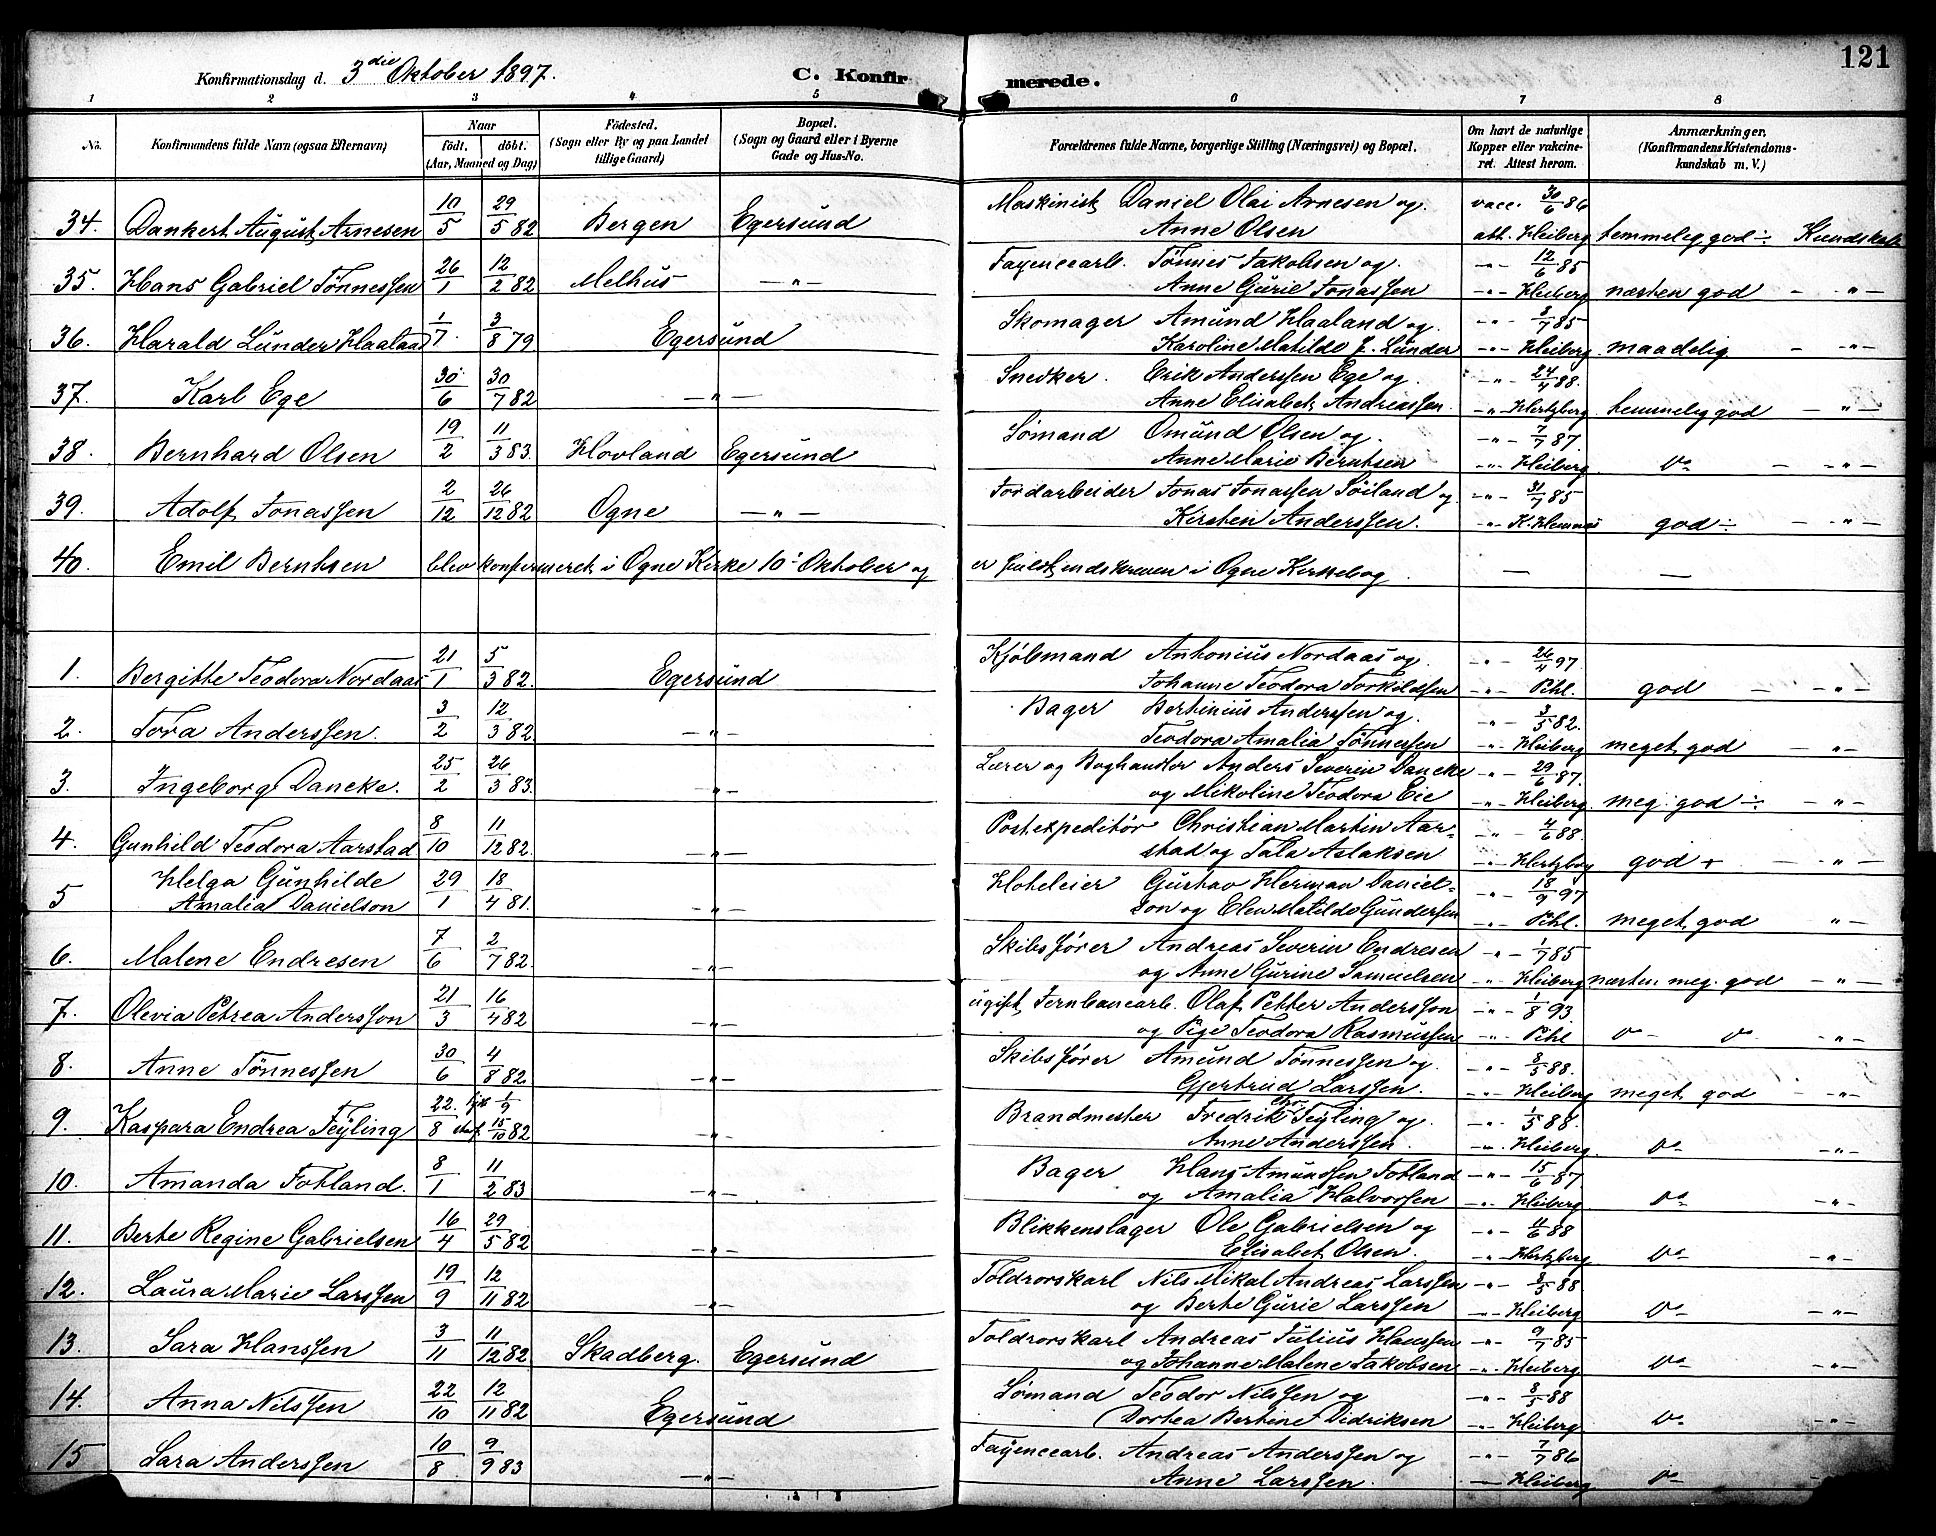 121
Konfirmationsdag d. 3die Oktober 1897. C. Konfirmerede.
1 2 3 4 5 6 7 8
No. Konfirmandens fulde Navn (ogsaa Efternavn) Naar født. døbt. (Aar, Maaned og Dag) Födested. (Sogn eller By og paa Landet tillige Gaard) Bopæl. (Sogn og Gaard eller i Byerne Gade og Hus-No. Forældrenes fulde Navne, borgerlige Stilling (Næringsvei) og Bopæl. Om havt de naturlige Kopper eller vakcineret. Attest herom. Anmærkninger. (Konfirmandens Kristendomskundskab m. V.)
34. Dankert August Arnesen 10/5 29/5 82 Bergen Egersund Maskinist Daniel Olai Arnesen og vacc. 30/6 86
Anne Olsen att. Heiberg temmelig god ÷ Kundskab
35. Hans Gabriel Tønnessen 26/1 12/2 82 Melhus —"— Fayencearb. Tønnes Jakobsen og —"— 12/6 85
Anne Gurie Jonassen —"— Heiberg næsten god — —"—
36. Harald Lunder Haaland 1/7 3/8 79 Egersund Skomager Amund Haaland og —"— 3/7 85
Karoline Matilde f. Lunder —"— Heiberg maadelig — —"—
37. Karl Ege 30/6 30/7 82 —"— Snedker Erik Anderssen Ege og —"— 24/4 88.
Anne Elisabet Andreassen. —"— Hertzberg temmelig god — —"—
38. Bernhard Olsen 19/2 11/3 83. Hovland Egersund Sømand Omund Olsen og —"— 7/7 87.
Anne Marie Berntsen —"— Heiberg do — —"—
39. Adolf Jonassen 2/12 26/12 82 Ogne —"— Jordarbeider Jonas Jonassen Søiland og —"— 31/7 85
Kirsten Anderssen. —"— K. Hemnes god ÷ — —"—
40. Emil Berntsen blev konfirmeret i Ogne Kirke 10. Oktober og er fuldt indskreven i Ogne Kirkebog — —
1. Bergitte Teodora Nordaas 21/1 5/3 82. Egersund Kjøbmand Antonius Nordaas og —"— 26/4 97
Johanne Teodora Torkildsen —"— Pihl. god — —"—
2. Tora Anderssen. 3/2 12/3 82 —"— Bager Bertinius Anderssen og —"— 3/5 82.
Teodora Amalia Tønnessen —"— Heiberg meget god — —"—
3. Ingeborg Dancke. 25/2 26/3 83. —"— Lærer og Boghandler Anders Severin Dancke —"— 29/6 87.
og Nikoline Teodora Eie —"— Heiberg meg. god ÷ —"—
4. Gunhild Teodora Aarstad 8/10 11/12 82. —"— Postexpeditør Christian Martin Aar- —"— 4/6 88.
stad og Tala Aslaksen —"— Hertzberg god + — —"—
5 Helga Gunhilde Amalia Danielson 29/1 18/4 81. —"— Hoteleier Gustav Herman Daniel- —"— 18/9 97
son og Elen Matilde Gundersen —"— Pihl. meget god —"—
6. Malene Endresen 7/6 2/7 82. —"— Skibsfører Andreas Severin Endresen —"— 1/7 85
og Anne Gurine Samuelsen —"— Heiberg næsten meg. god —"—
7. Olevia Petrea Andersson 21/3 16/4 82 —"— ugift Jernbanearb. Olaf Petter Andersson —"— 1/8 93.
og Pige Teodora Rasmussen —"— Pihl do do —"—
8. Anne Tønnessen 30/6 4/8 82 —"— Skibsfører Amund Tønnessen og —"— 3/5 88.
Gjertrud Larssen. —"— Heiberg meget god —"—
9. Kaspara Endrea Feyling 22/8 1/9 15/10 82 —"— Brandmester Fredrik Chr. Feyling og —"— 1/5 88.
Anne Anderssen. —"— Heiberg do —"—
10. Amanda Fotland. 8/1 11/2 83 —"— Bager Hans Amundsen Fotland —"— 15/6 87
og Amalia Halvorsen —"— Heiberg. do —"—
11. Berte Regine Gabrielsen 16/4 29/5 82 —"— Blikkenslager Ole Gabrielsen og —"— 11/6 88
Elisabet Olsen. —"— Hertzberg do —"—
12. Laura Marie Larssen 19/9 12/11 82 —"— Toldrorskarl Nils Mikal Andreas Larssen —"— 3/5 88
og Berte Gurie Larssen —"— Heiberg do —"—
13. Sara Hanssen 3/11 11/12 82 Skadberg. Egersund Toldrorskarl Andreas Julius Hanssen —"— 9/7 85
og Johanne Malene Jakobsen —"— Heiberg do —"—
14. Anna Nilssen 22/10 12/11 82 Egersund Sømand Teodor Nilssen og —"— 3/5 88
Dortea Bertine Didriksen —"— Heiberg. do —"—
15 Sara Anderssen 10/8 9/9 83 —"— Fayencearb. Andreas Anderssen og —"— 7/7 86
Anne Larssen. — Heiberg do —"—